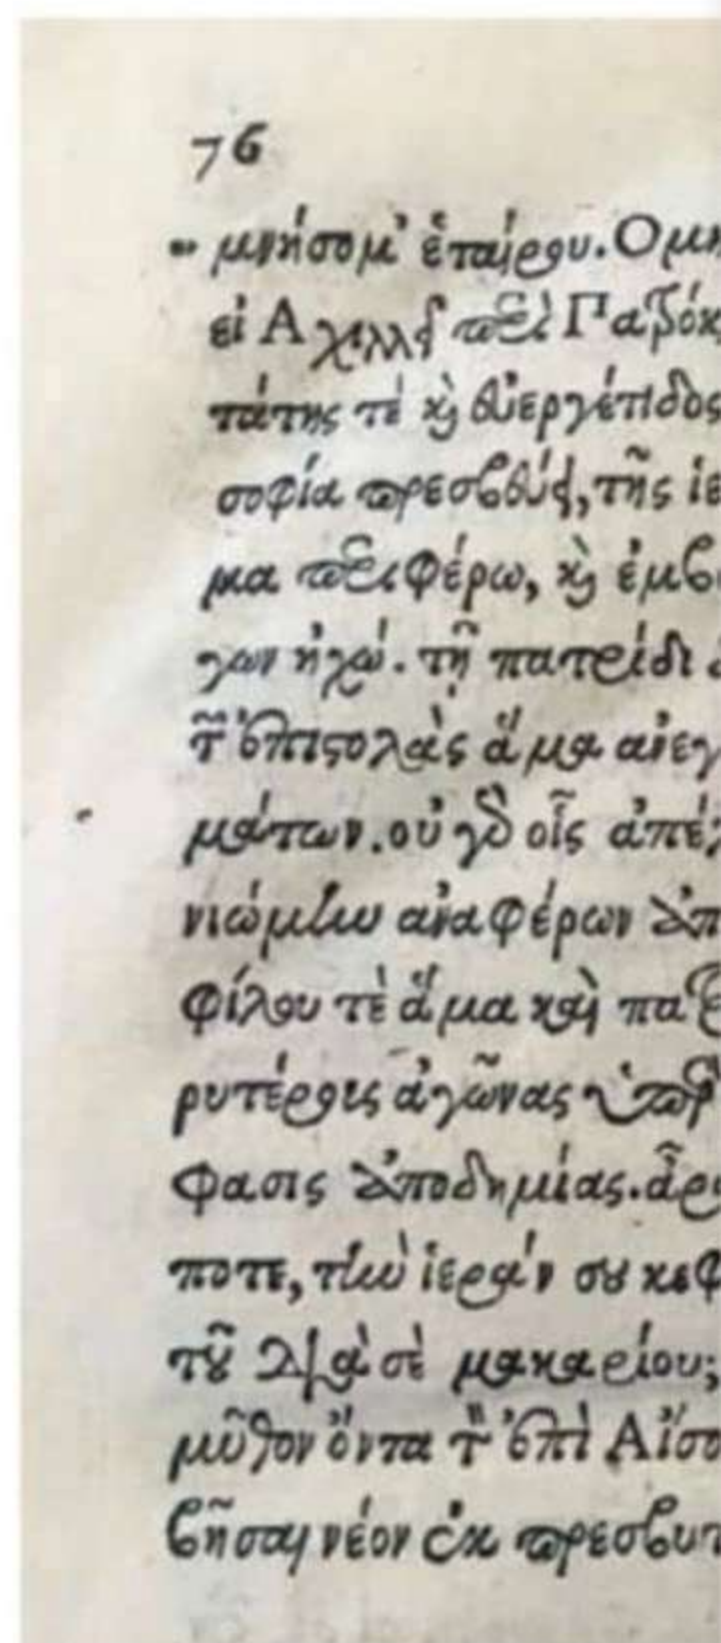 76
μνήσομ' ἑταίρου. Ομη
εἰ Αχιλλεῖ περὶ Πα
τάτης τὲ καὶ εὐεργέτιδος
σοφία πρεσβύ τῆς ἱε
μα περιφέρω, καὶ ἐμβ
γων ἠχώ. τῇ πατρίδι
τ ἐπιστολὰς ἅμα ἀνεγ
μάτων. οὐ γὰρ οἷς ἀπέ
νιώμην ἀναφέρων ἀπ
φίλου τὲ ἅμα καὶ πα
ρυτέροις ἀγῶνας ὑπὲρ
φασις ἀποδημίας. ἆρ
ποτε, τὴν ἱεράν σου κεφ
τοῦ διὰ σὲ μακαρίου;
μῦθον ὄντα τ ἐπὶ Αἴσο
βῆσαι νέον ἐκ πρεσβυτ